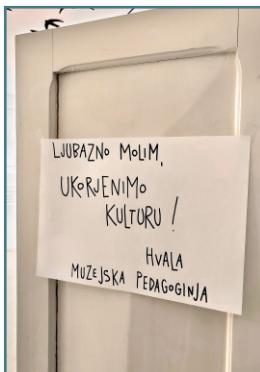 LJUBAZNO MOLIM,
UKORJENIMO
KULTURU!
HVALA
MUZEJSKA PEDAGOGINJA